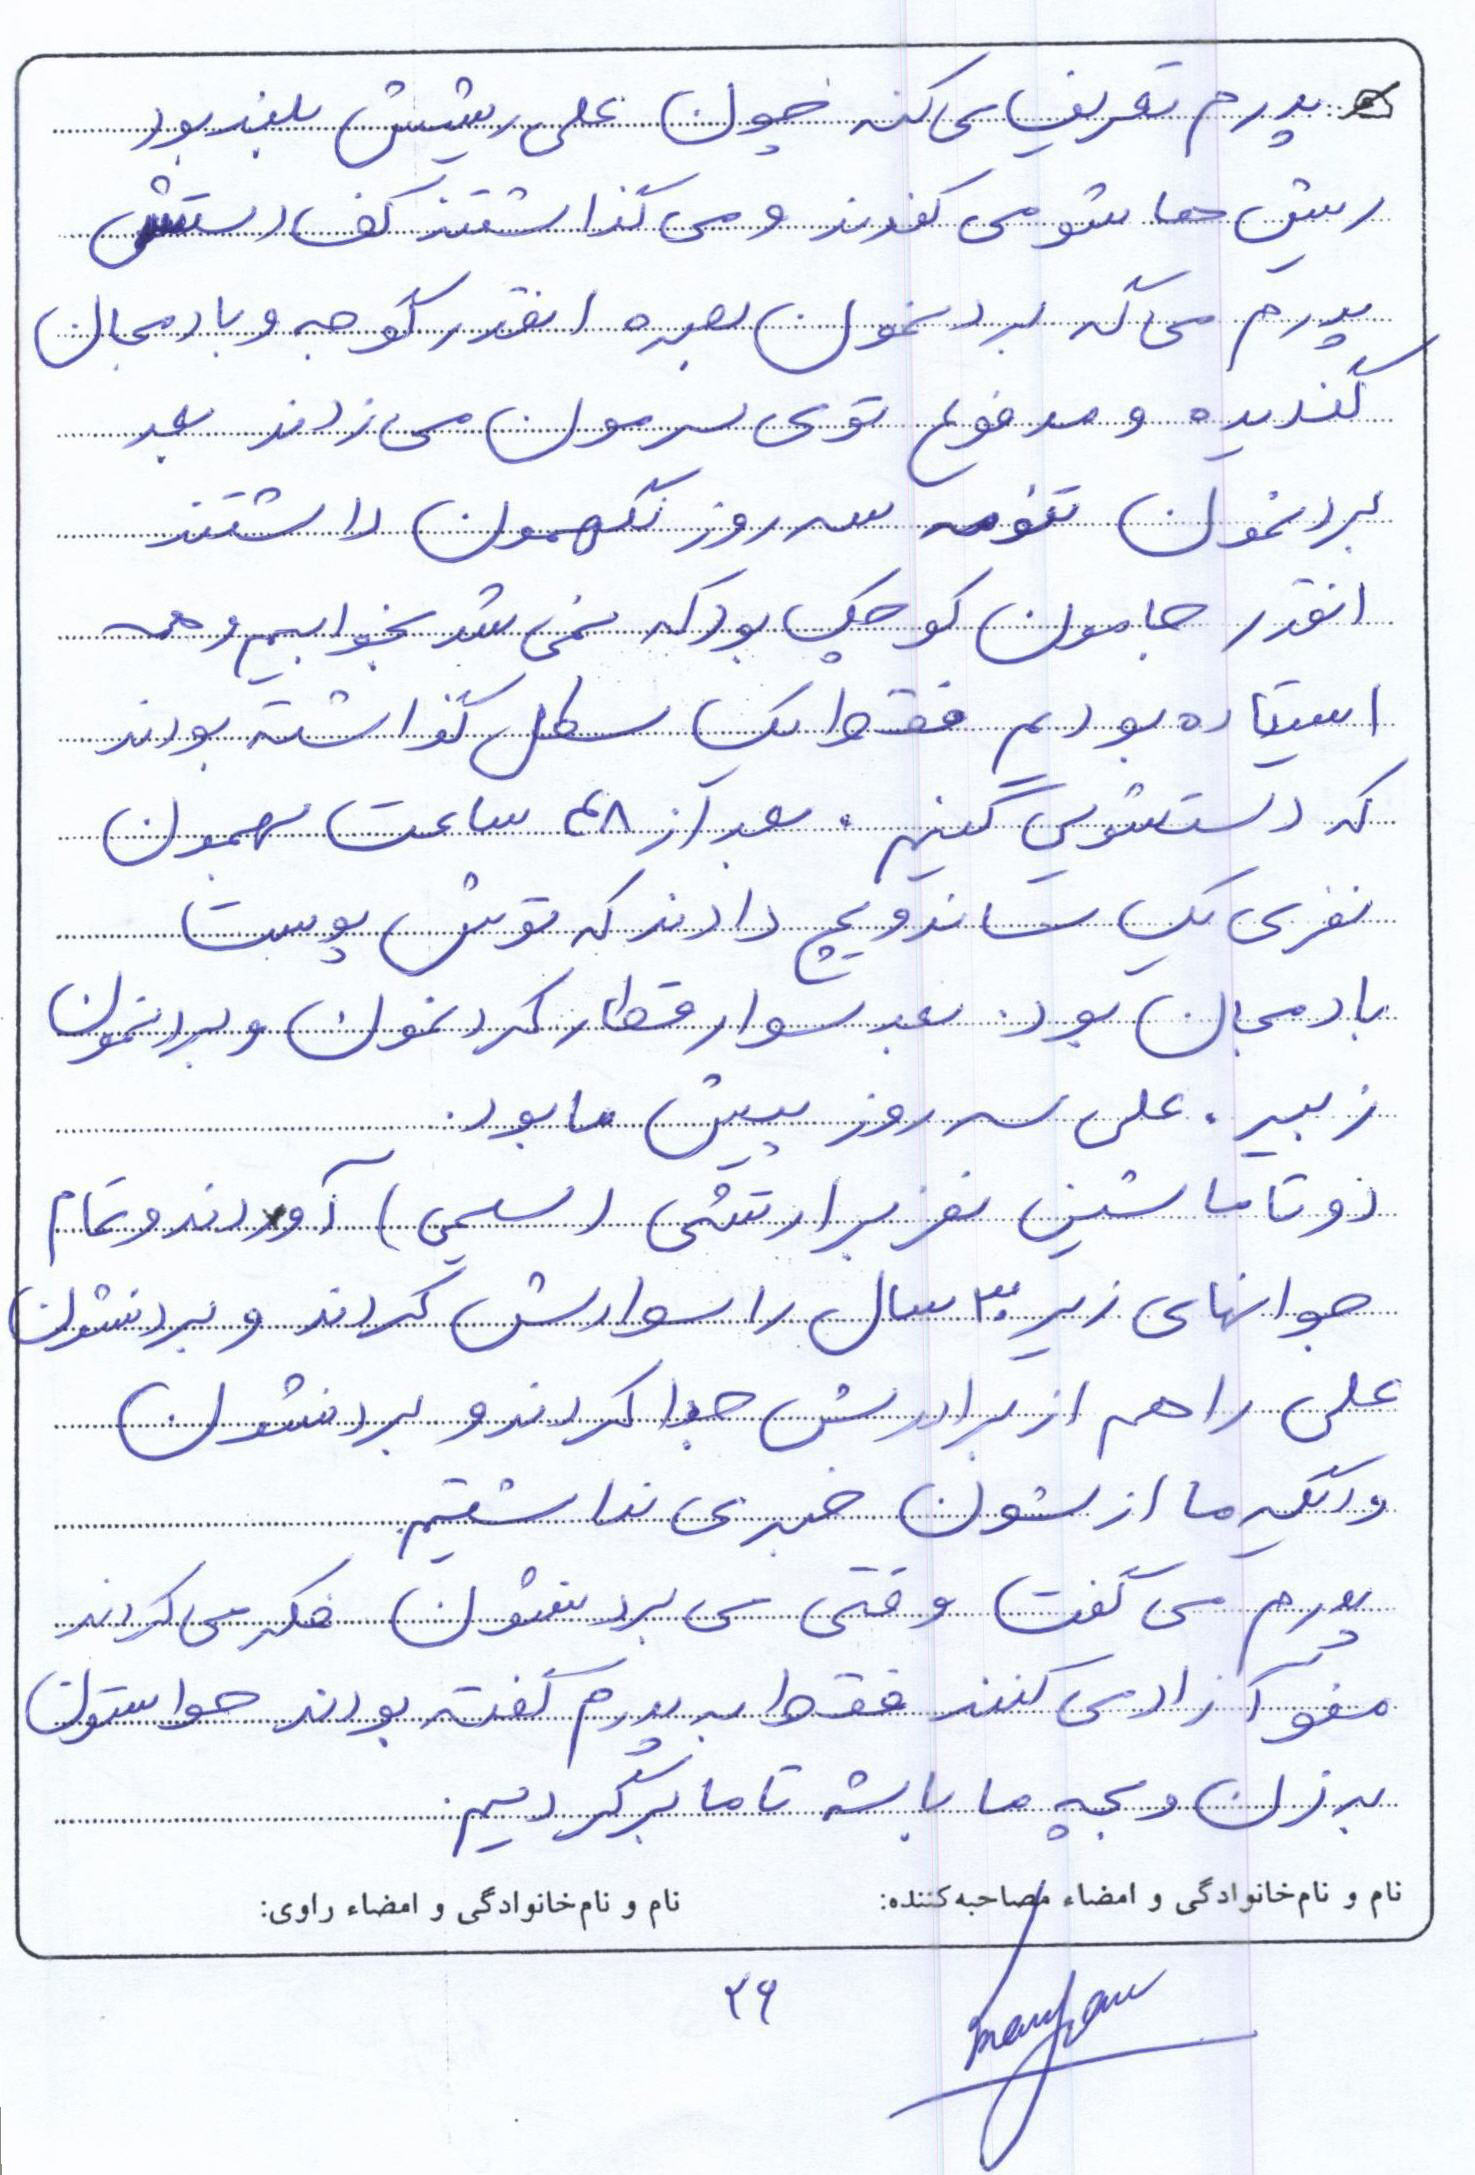 پدرم تعریف می کنه چون علی ریشش بلند بود
ریش هاشو می کندند و می گذاشتند کف دستش
پدرم می گه بردنمون بصره انقدر گوجه و بادمجان
گندیده و مدفوع توی سرمون می زدند بعد
بردنمون تنومه سه روز نگهمون داشتند
انقدر جامون کوچک بود که نمی شد بخوابیم و همه
ایستاده بودیم فقط یک سطل گذاشته بودند
که دستشویی کنیم. بعد از ۴۸ ساعت بهمون
نفری یک ساندویچ دادند که توش پوست
بادمجان بود. بعد سوار قطار کردنمون و بردنمون
زبیر. علی سه روز پیش ما بود.
دوتا ماشین نفربر ارتشی (سیمی) آوردند و تمام
جوانهای زیر ۳۰ سال را سوارش کردند و بردنشون
علی را هم از برادرش جدا کردند و بردنشون
و دیگه ما ازشون خبری نداشتیم.
پدرم می گفت وقتی می بردنشون فکر می کردند
آزاد می کنند فقط به پدرم گفته بودند حواستون
به زن و بچه ما باشه تا ما برگردیم.
نام و نام‌خانوادگی و امضاء مصاحبه‌کننده: نام و نام‌خانوادگی و امضاء راوی:
۲۶